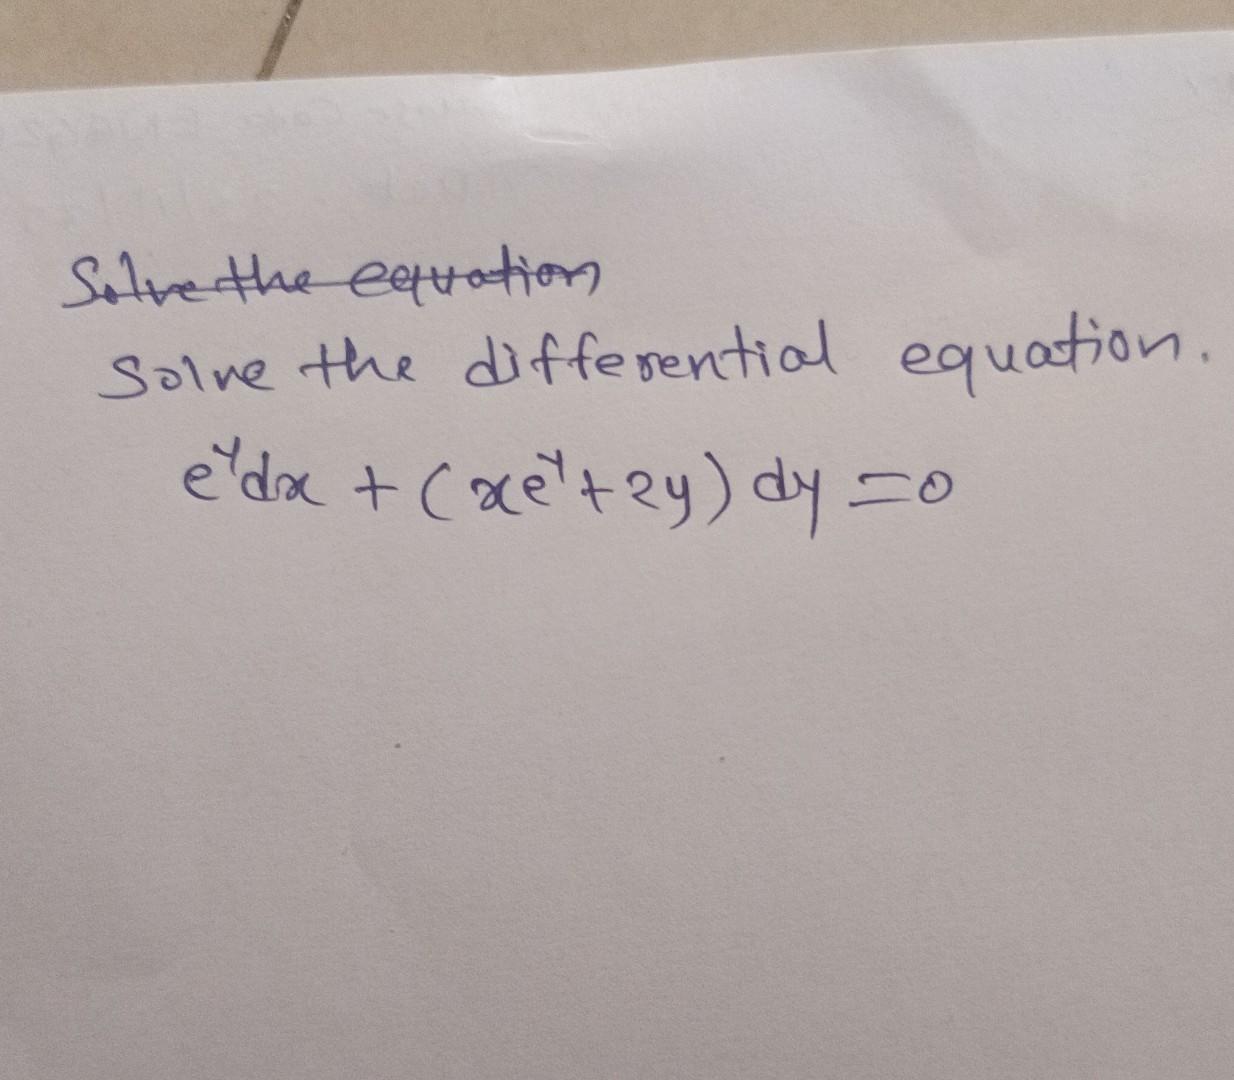 Solve the equation
Solve the differential equation.
e^y dx + (xe^y + 2y) dy = 0